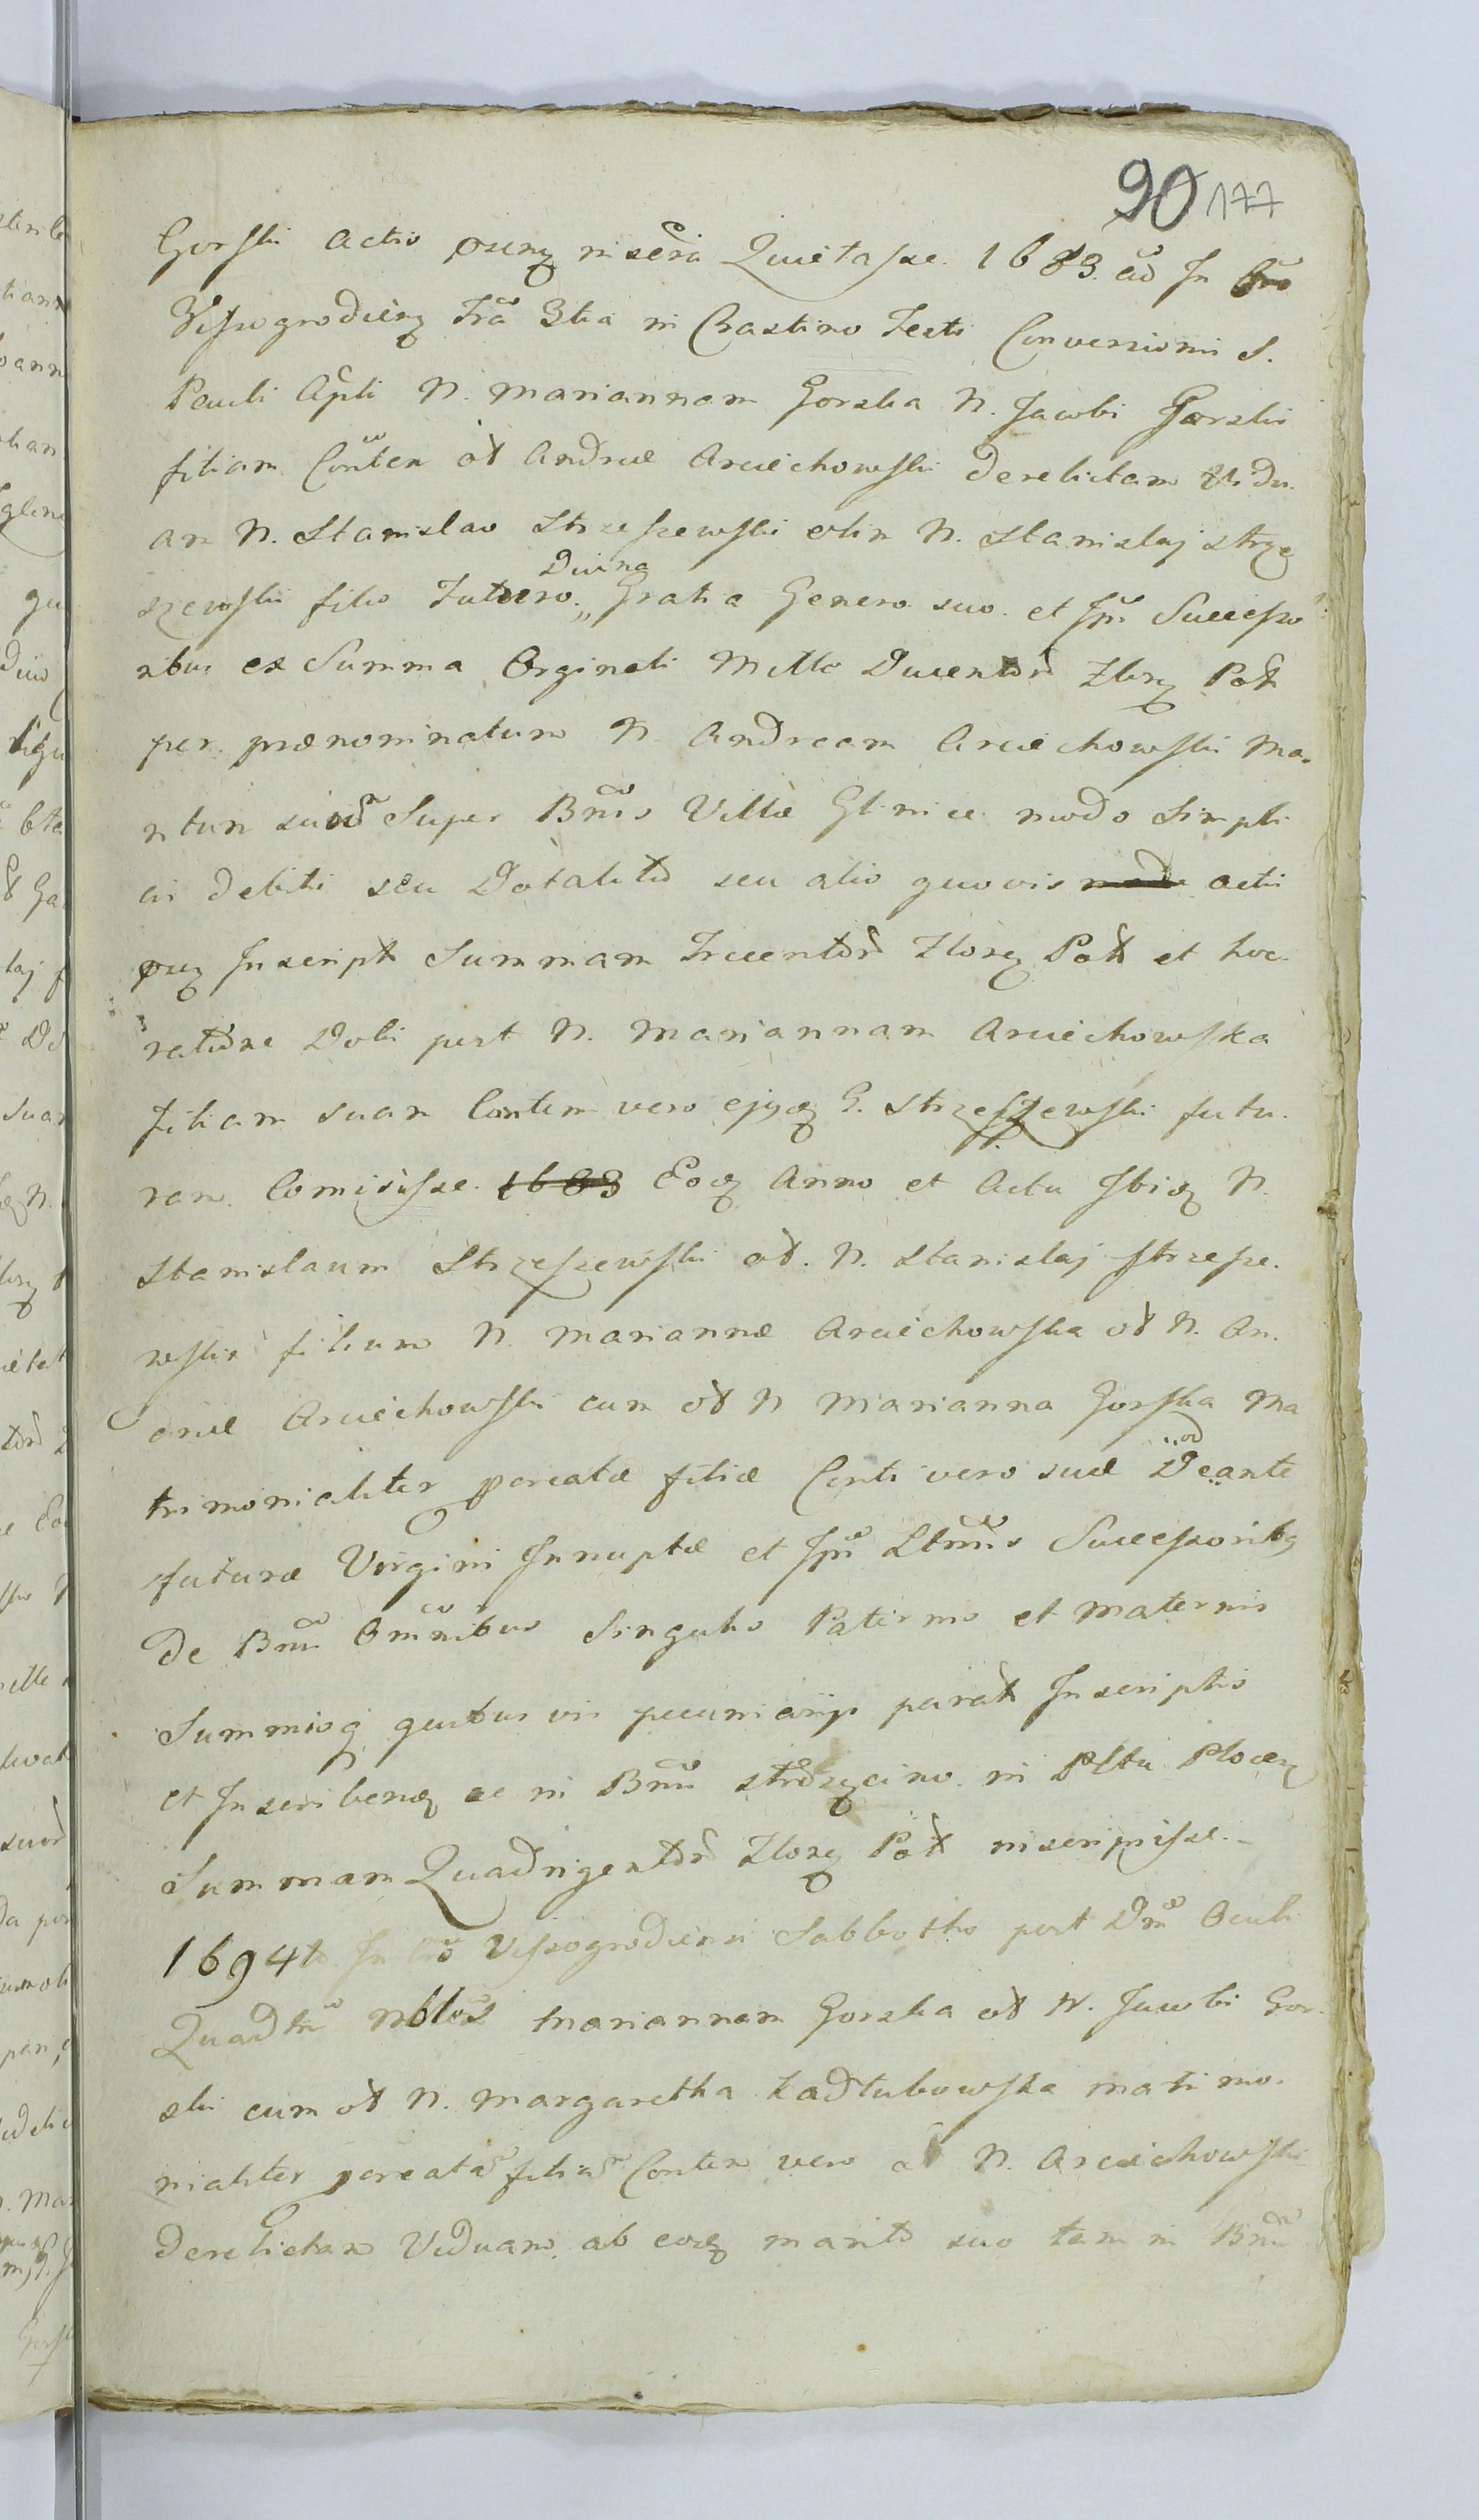 90 177
Gorski actis insēri Quietasse. 1683. In
Wyszogrodien Frā 3tia in Crastino Festi Conversionis S.
Pauli Apli N. Mariannam Gorska N. Jacobi Gorski
filiam Conten ol Andreæ Arciechowski derelictam Vidu.
am N. Stanislao Strzeszewski olim N. Stanislaj Strze
szewski filio Futuro Divina Gratia Genero suo. et Successo
ribus ex Summa Orginali Mille Ducentor Flor Pol
per prænominatum N. Andream Arciechowski Ma.
ritum suū Super Bnis Villæ Glinice modo Simpli
cis debiti seu Dotalitio seu alio quovis actis
Inscript Summam Trecentor Flor Pol et hoc
ratione Doti post N. Mariannam Arciechowska
filiam suam Contem vero ejusq G. Strzeszewski futu.
ram Comisisse. 1683 Eoq Anno et Actu Ibiq N.
Stanislaum Strzeszewski ol. N. Stanislaj Strzesze.
wskis filium N. Mariannæ Arciechowska ol N. An.
dreæ Arciechowski cum ol N Marianna Gorska Ma
trimonialiter pcreatæ filiæ Conti vero suæ Deo dante
futuræ Virgini Innuptæ et Ltmis Successoribq
de Bnis Omnibus Singulis Paternis et Maternis
Summisq quibus vis pecuniarijs parat Inscriptis
et Inscribenq ac in Bnis in Psttu Plocen
Summam Quadrigentor Flor Pol inscripsisse. -
1694to In Wyszogrodiensi Sabbatho post Dm Oculi
Quadm Mariannam Gorska ol N. Jacobi Gor
ski cum ol N. Margaretha Kadlubowska matrimo.
nialiter pcreatā filiā Conten vero ol N. Arciechowski
derelictam Viduam ab eoq marito suo tam in Bnis